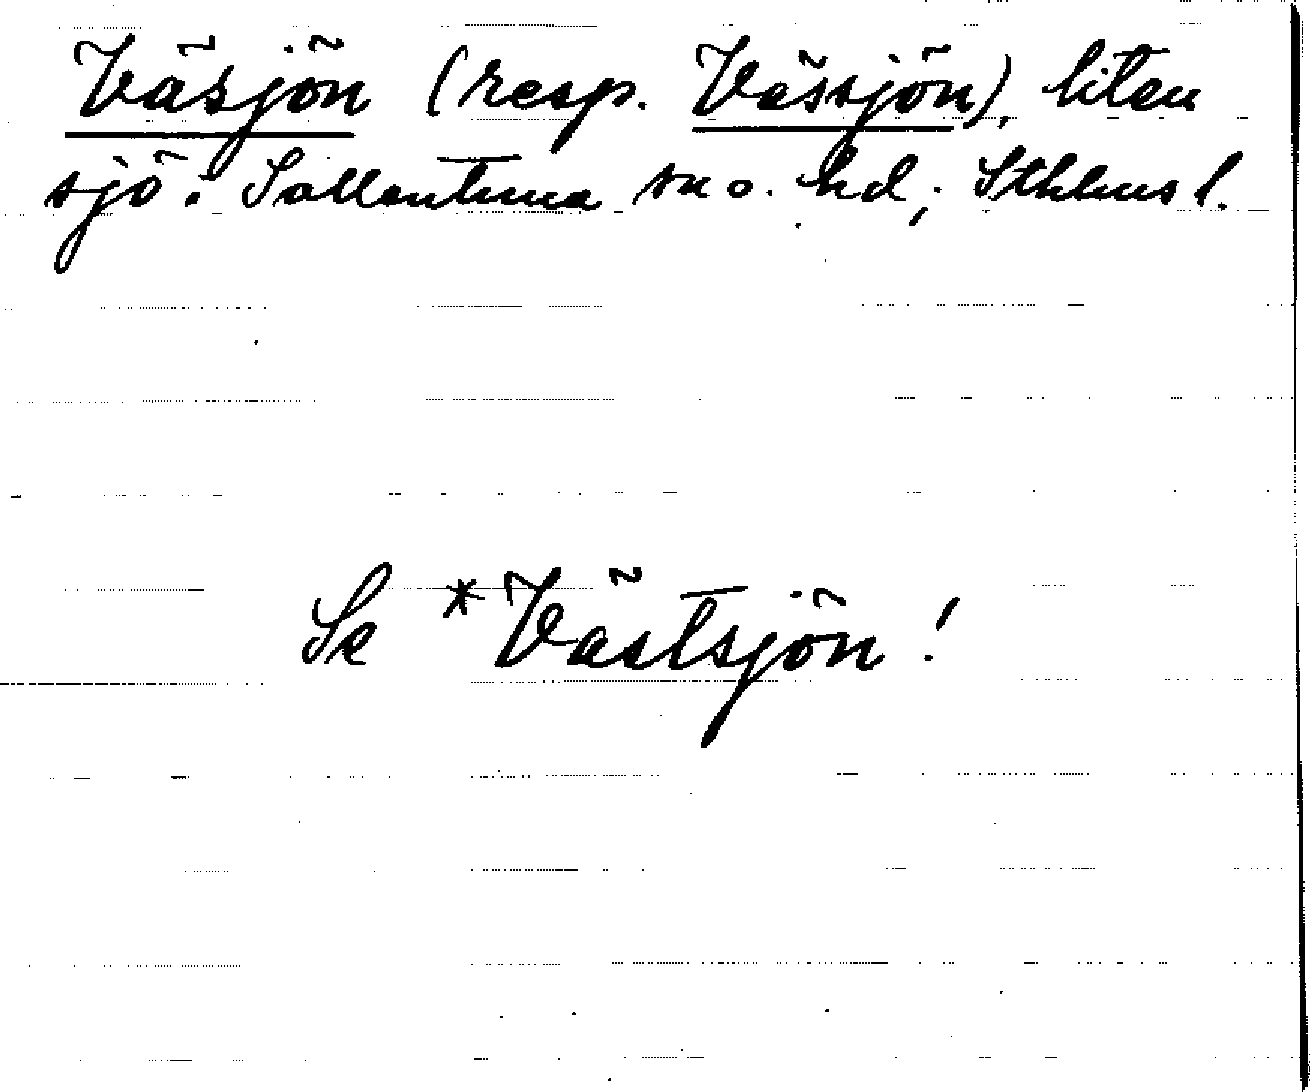 Väsjön (resp. Vässjön), liten
sjö i Sollentuna sn o. hd, Sthlms l.
Se *Västsjön!